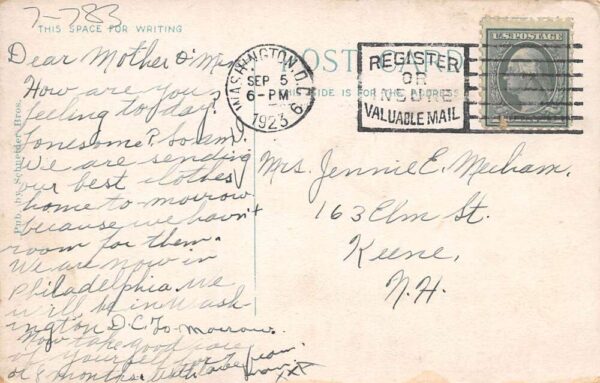 7-783
THIS SPACE FOR WRITING
POST CARD
SIDE IS FOR THE ADDRESS
WASHINGTON, D.C.
SEP 5
6-PM
1923
6
REGISTER
OR
INSURE
VALUABLE MAIL
U.S. POSTAGE
Pub. by Schneider Bros.
Dear Mother &
How are you
feeling to day?
Lonesome? So am I
We are sending
our best clothes
home to-morrow
because we havn't
room for them.
We are now in
Philadelphia. We
will be in Wash-
ington D.C. To-morrow.
Now take good care
of yourself for
or 8 months. With love from
xxx
Mrs. Jennie E. Mecham.
163 Elm St.
Keene,
N.H.